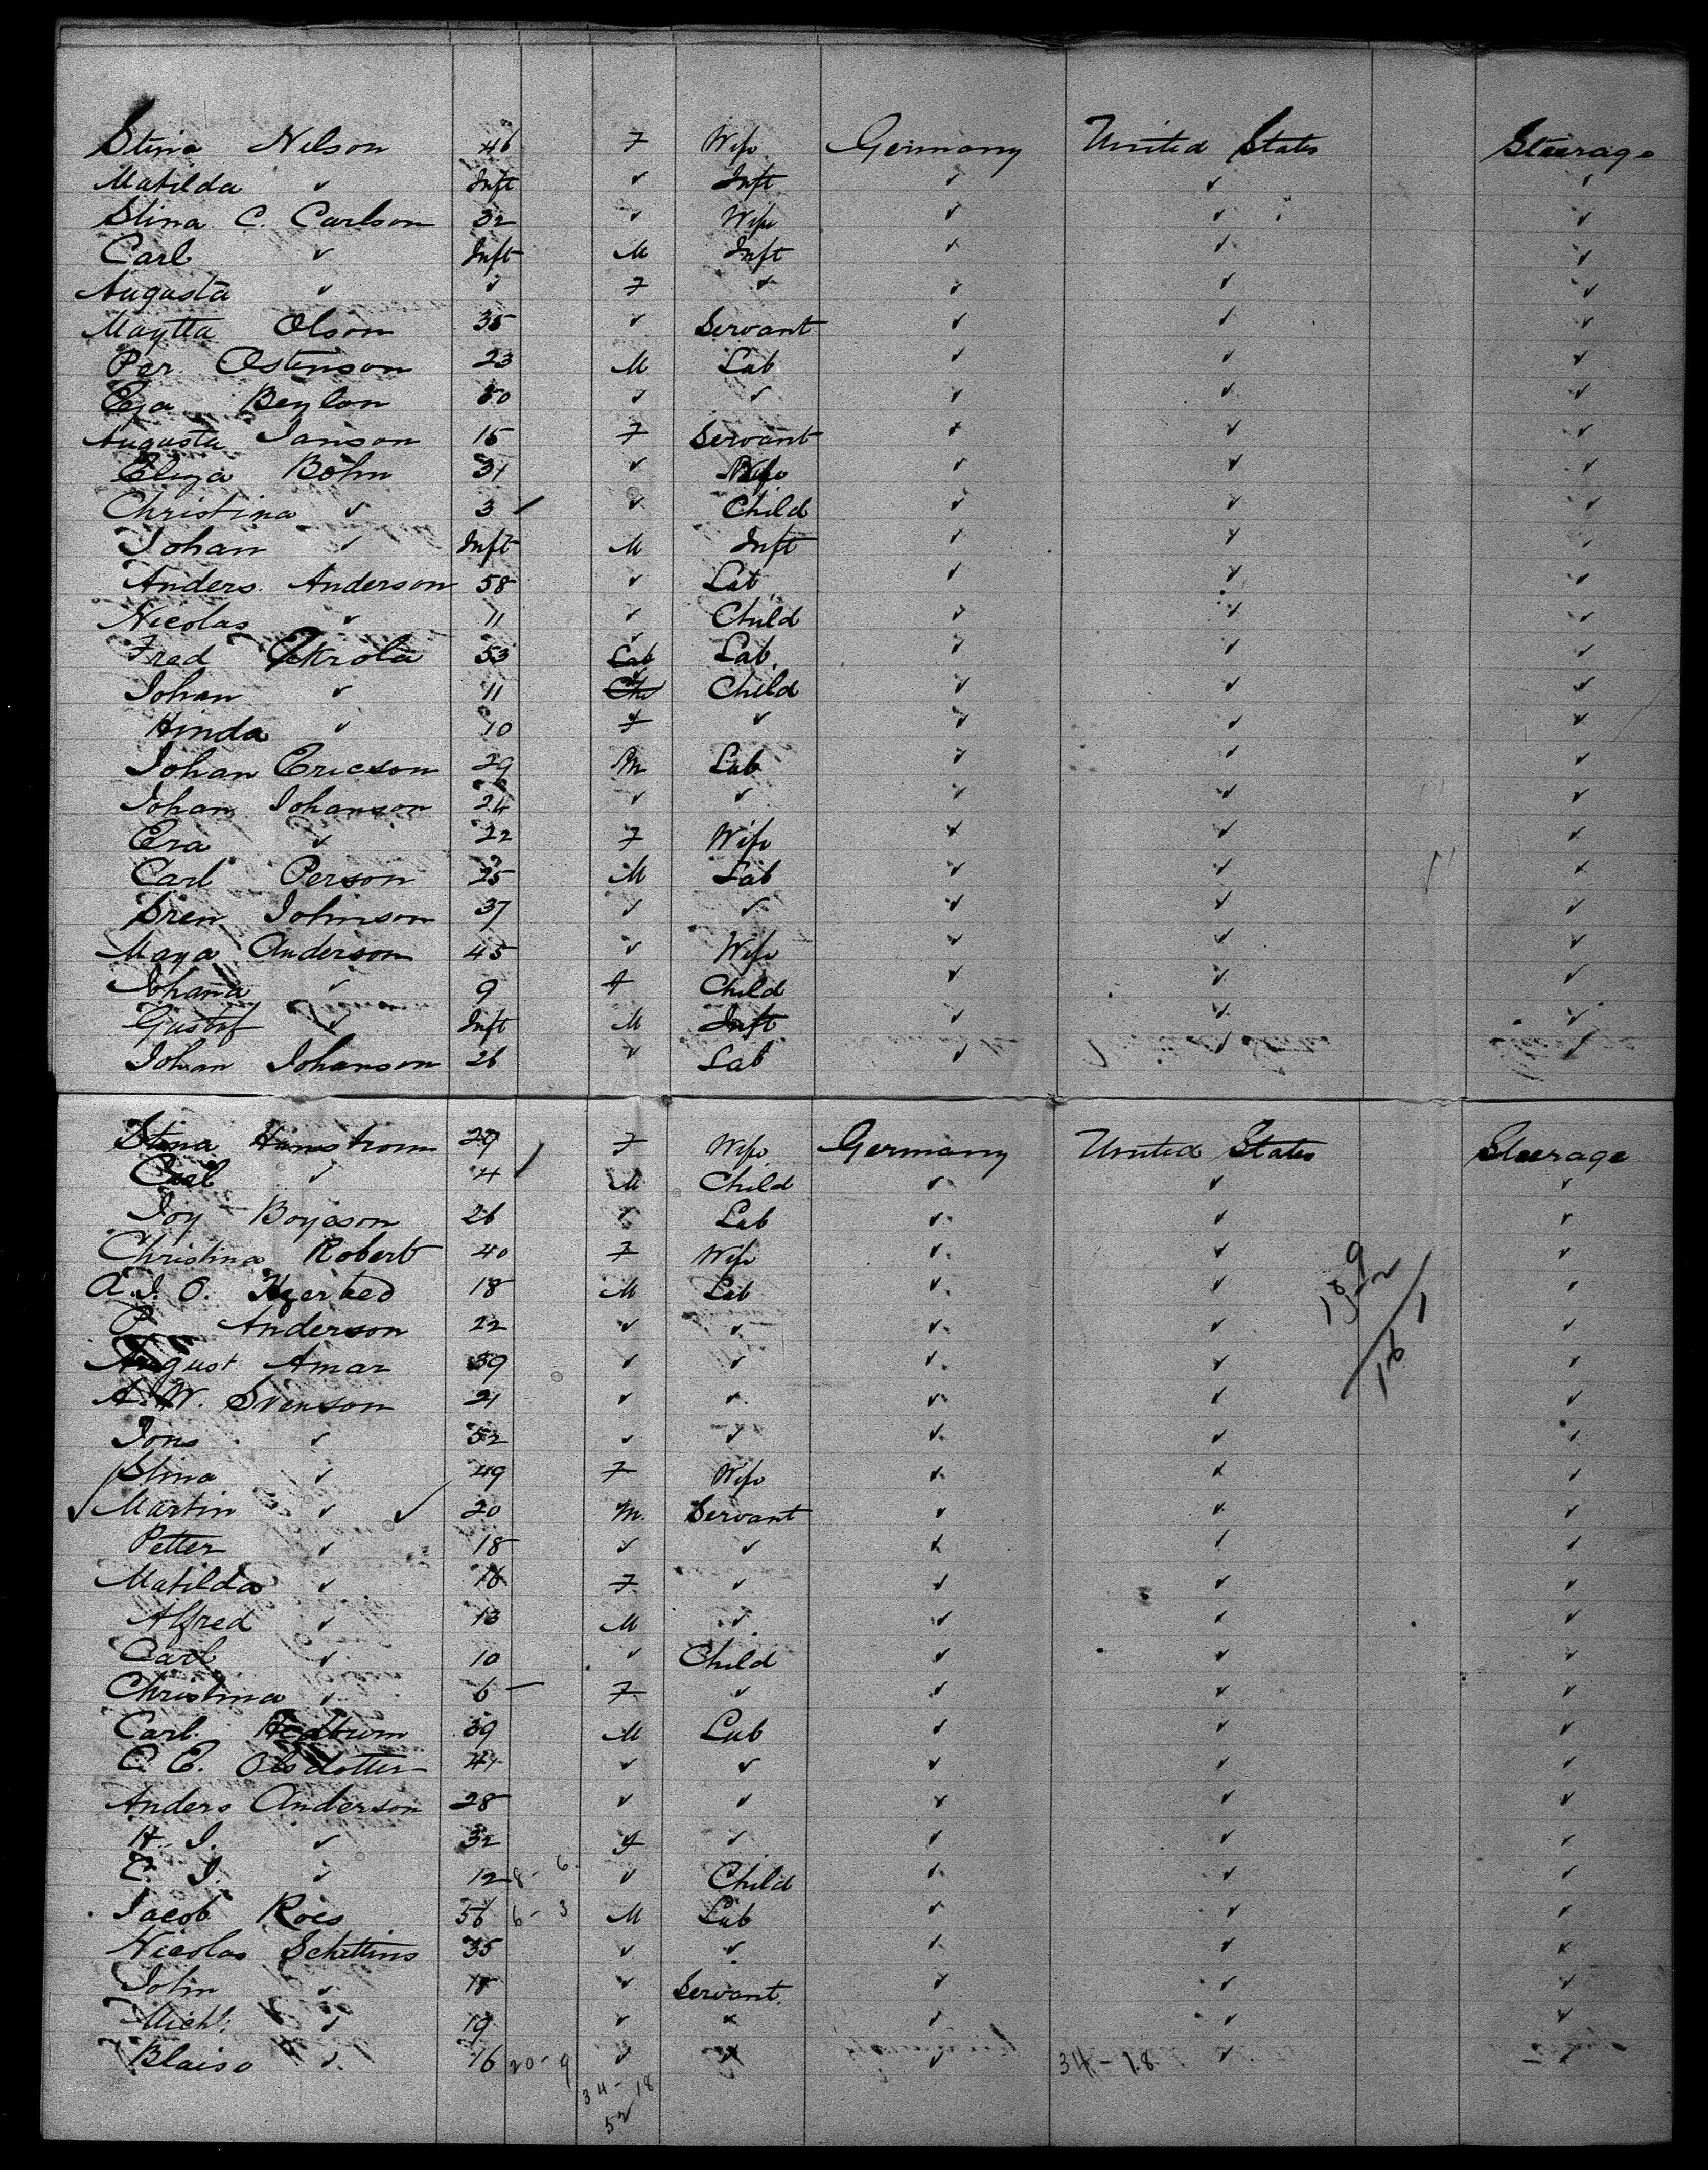 Stina Nelson 46 F Wife Germany United States Steerage
Matilda ✓ Inft ✓ Inft ✓ ✓ ✓
Stina C. Carlson 32 ✓ Wife ✓ ✓ ✓
Carl ✓ Inft M Inft ✓ ✓ ✓
Augusta ✓ ✓ F ✓ ✓ ✓ ✓
Maytta Olson 35 ✓ Servant ✓ ✓ ✓
Per Ostenson 23 M Lab ✓ ✓ ✓
50 ✓ ✓ ✓ ✓ ✓
Augusta Janson 15 F Servant ✓ ✓ ✓
Eliza Bohn 31 ✓ Wife ✓ ✓ ✓
Christina ✓ 3 ✓ Child ✓ ✓ ✓
Johan ✓ Inft M Inft ✓ ✓ ✓
Anders Anderson 58 ✓ Lab ✓ ✓ ✓
Nicolas ✓ 11 ✓ Child ✓ ✓ ✓
Fred 53 Lab ✓ Lab. ✓ ✓ ✓
Johan ✓ 11 Chi ✓ Child ✓ ✓ ✓
Hinda ✓ 10 F ✓ ✓ ✓ ✓
Johan Ericson 29 M Lab ✓ ✓ ✓
Johan Johanson 24 ✓ ✓ ✓ ✓ ✓
Era ✓ 22 F Wife ✓ ✓ ✓
Carl Person 25 M Lab ✓ ✓ ✓
Sren Johnson 37 ✓ ✓ ✓ ✓ ✓
Maya Anderson 45 ✓ Wife ✓ ✓ ✓
Johana ✓ 9 F Child ✓ ✓ ✓
Gustaf ✓ Inft M Inft ✓ ✓ ✓
Johan Johanson 26 ✓ Lab ✓ ✓ ✓
Stina Hamstrom 29 F Wife Germany United States Steerage
Carl ✓ 4 M Child ✓ ✓ ✓
Joy Boyeson 26 ✓ Lab ✓ ✓ ✓
Christina Robert 40 F Wife ✓ ✓ ✓
A. J. O. 18 M Lab ✓ ✓ ✓
P Anderson 22 ✓ ✓ ✓ ✓ ✓
August Amar 39 ✓ ✓ ✓ ✓ ✓
A. W. Svenson 21 ✓ ✓ ✓ ✓ ✓
Jons ✓ 52 ✓ ✓ ✓ ✓ ✓
Stina ✓ 49 F Wife ✓ ✓ ✓
✓ Martin ✓ ✓ 20 M. Servant ✓ ✓ ✓
Petter ✓ 18 ✓ ✓ ✓ ✓ ✓
Matilda ✓ 16 F ✓ ✓ ✓ ✓
Alfred ✓ 13 M ✓ ✓ ✓ ✓
Carl ✓ 10 ✓ Child ✓ ✓ ✓
Christina ✓ 6 – F ✓ ✓ ✓ ✓
Carl 39 M Lab ✓ ✓ ✓
C. E. Olsdotter 41 ✓ ✓ ✓ ✓ ✓
Anders Anderson 28 ✓ ✓ ✓ ✓ ✓
H. J. ✓ 32 F ✓ ✓ ✓ ✓
C. J. ✓ 12 8 - 6 ✓ Child ✓ ✓ ✓
Jacob Roes 56 6 - 3 M Lab ✓ ✓ ✓
Nicolas Schettins 35 ✓ ✓ ✓ ✓ ✓
John ✓ 18 ✓ Servant. ✓ ✓ ✓
Michl. ✓ 19 ✓ ✓ ✓ ✓ ✓
Blaise ✓ 16 20 - 9 ✓ ✓ ✓ 34 - 18 ✓ ✓
34 - 18
52